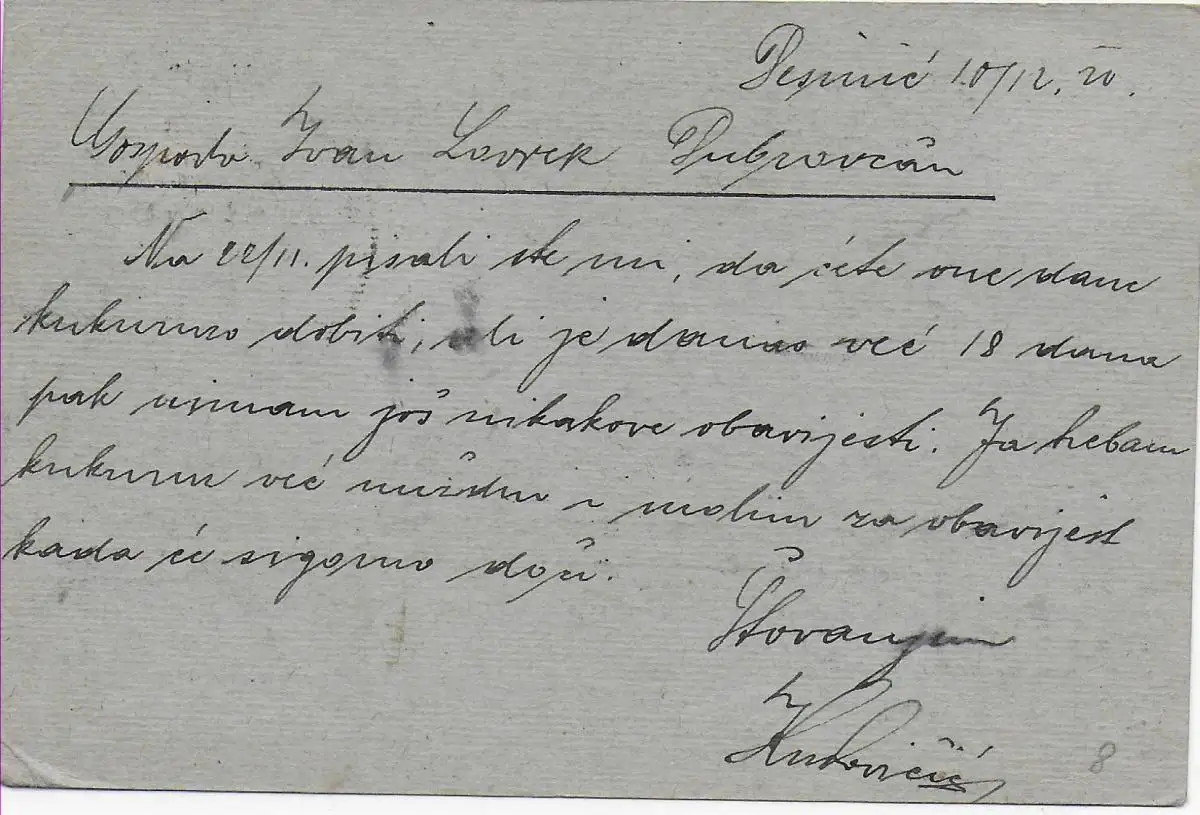 10/12. 20.
Gospodn Ivan Lovrek Dubrovčan
Na 22/11. pisali ste mi, da ćete ove dane
kukuruzo dobiti, ali je danas već 18 dana
pak nimam još nikakove obavijesti. Ja trebam
kukuruz već nuždno i molim za obavijest
kada će sigurno doći.
Štovanjem
8